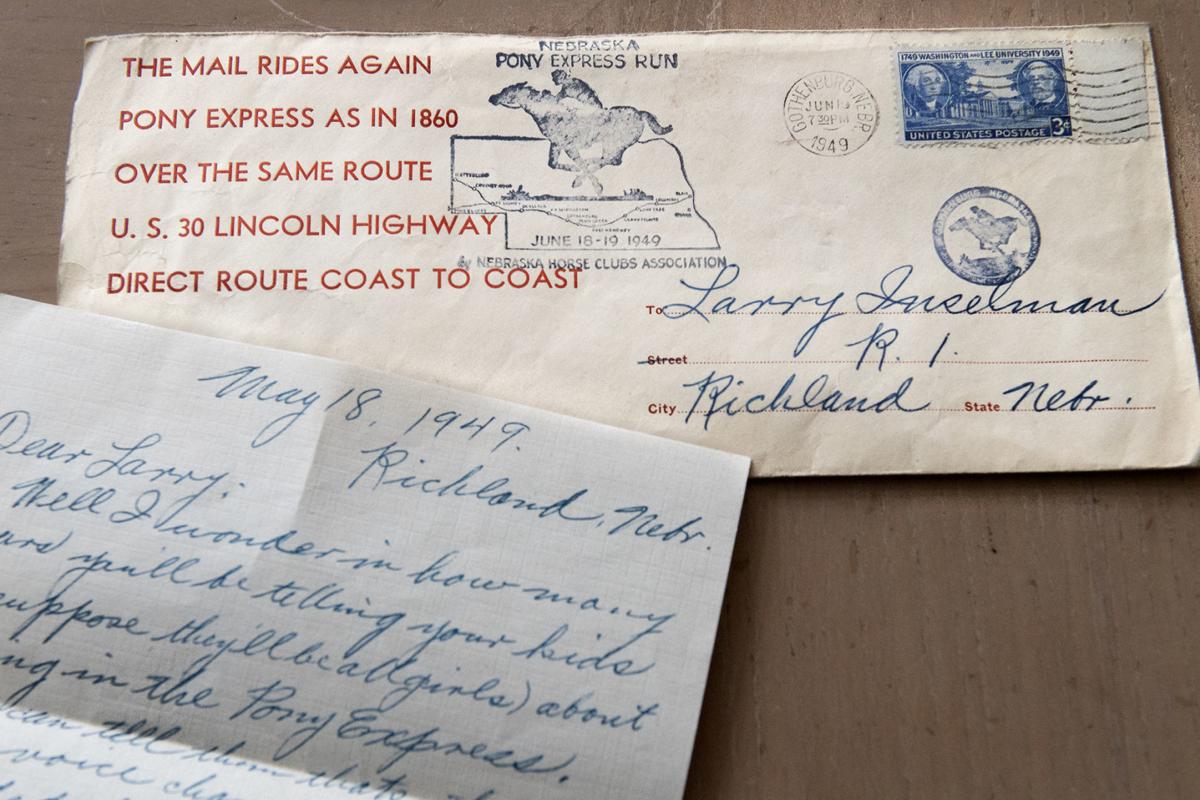 THE MAIL RIDES AGAIN
PONY EXPRESS AS IN 1860
OVER THE SAME ROUTE
U. S. 30 LINCOLN HIGHWAY
DIRECT ROUTE COAST TO COAST
NEBRASKA
PONY EXPRESS RUN
JUNE 18-19 1949
by NEBRASKA HORSE CLUBS ASSOCIATION
GOTHENBURG, NEBR.
JUN 19
7 30 PM
1949
1749 WASHINGTON AND LEE UNIVERSITY 1949
UNITED STATES POSTAGE 3¢
To Larry Inselman
Street R. 1.
City Richland State Nebr.
May 18, 1949.
Richland, Nebr.
Dear Larry:
Well I wonder in how many
you'll be telling your kids
suppose they'll be all girls) about
in the Pony Express.
can tell them that
voice